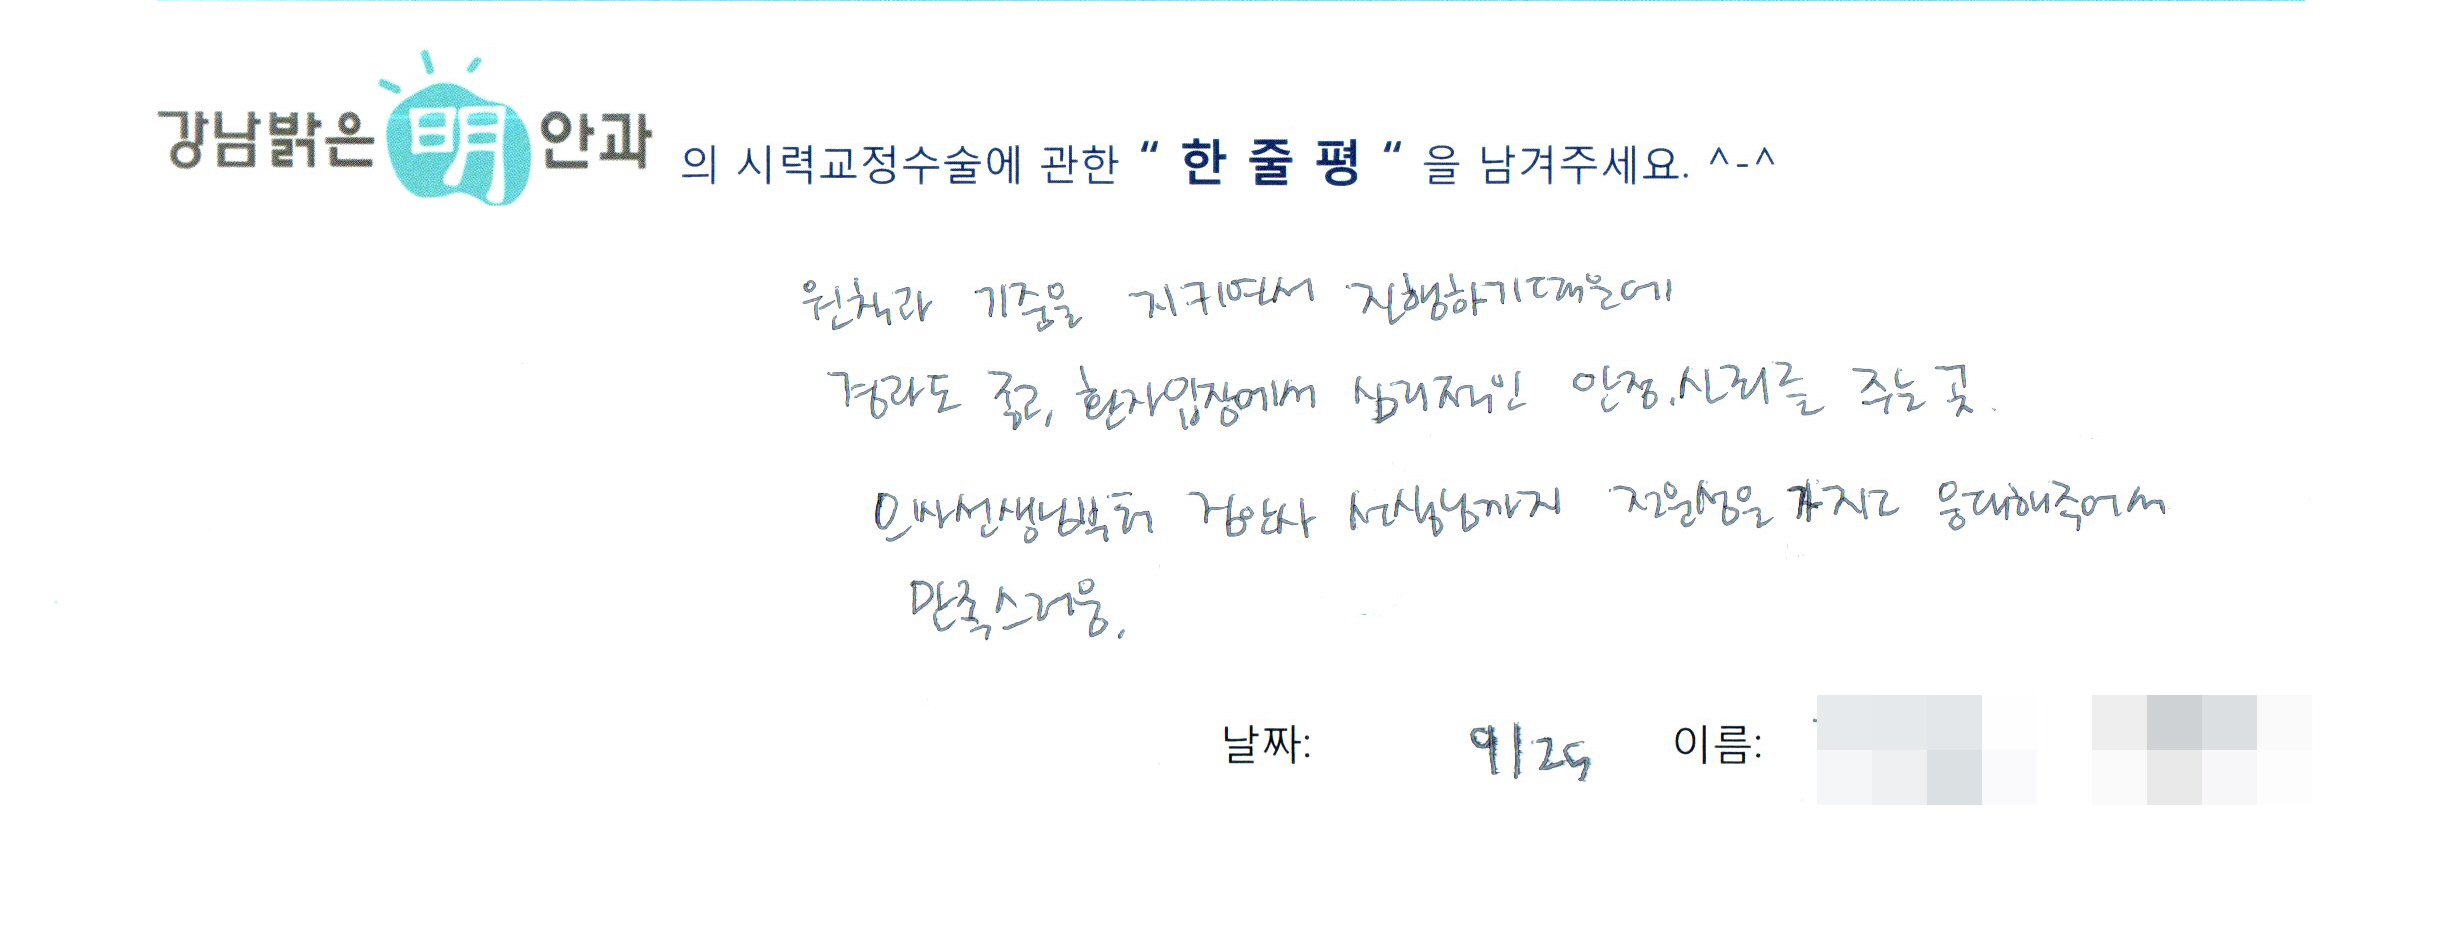 강남밝은明안과 의 시력교정수술에 관한 “ 한 줄 평 “ 을 남겨주세요. ^-^
원칙과 기준을 지키면서 진행하기때문에
경과도 좋고, 환자입장에서 심리적인 안정.신뢰를 주는 곳.
의사선생님부터 검안사 선생님까지 전문성을 가지고 응대해주어서
만족스러움.
날짜: 9/25 이름: